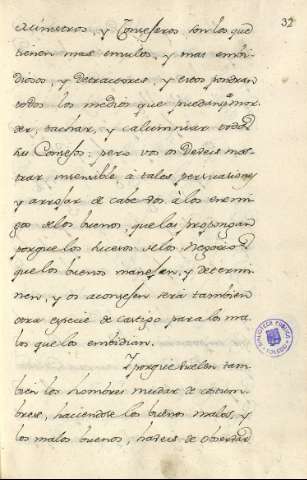 32
Ministros, y Consejeros son los que
tienen mas emulos, y mas embi-
diosos, y detractores, y estos pondran
todos los medios que puedan pª mor-
der, tachar, y calumniar todos
sus Consejos: pero vos os debeis mos-
trar insensible à tales persuasiones
y arrojar de cabe vos à los enemi-
gos de los buenos, que las propongan
porque los sucesos de los negocios
que los buenos manejen, y determi-
nen, y os aconsejen será tambien
otra especie de castigo para los ma-
los que los embidian.
Y porque suelen tam-
bien los hombres mudar de costum-
bres, haciendose los buenos malos, y
los malos buenos, habeis de observar
BIBLIOTECA PUBLICA
TOLEDO